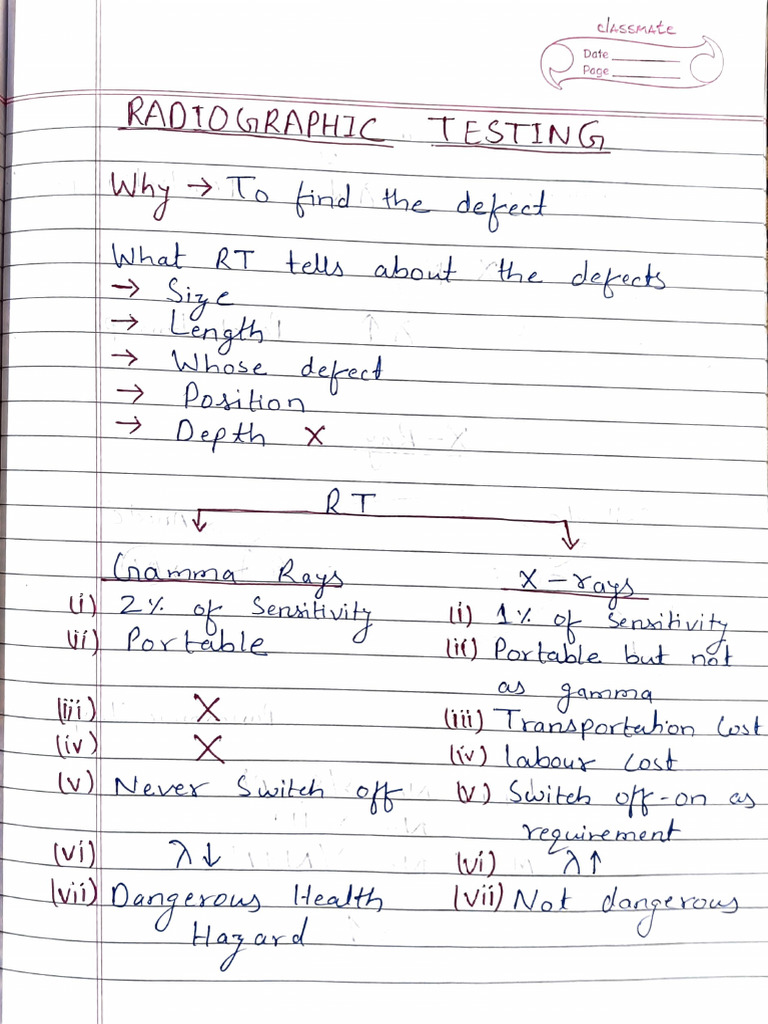 classmate
Date
Page
RADIOGRAPHIC TESTING
Why → To find the defect
What RT tells about the defects
→ Size
→ Length
→ Whose defect
→ Position
→ Depth X
RT
Gamma Rays X-rays
(i) 2% of Sensitivity (i) 1% of Sensitivity
(ii) Portable (ii) Portable but not
as gamma
(iii) X (iii) Transportation Cost
(iv) X (iv) Labour Cost
(v) Never Switch off (v) Switch off-on as
requirement
(vi) λ↓ (vi) λ↑
(vii) Dangerous Health (vii) Not dangerous
Hazard